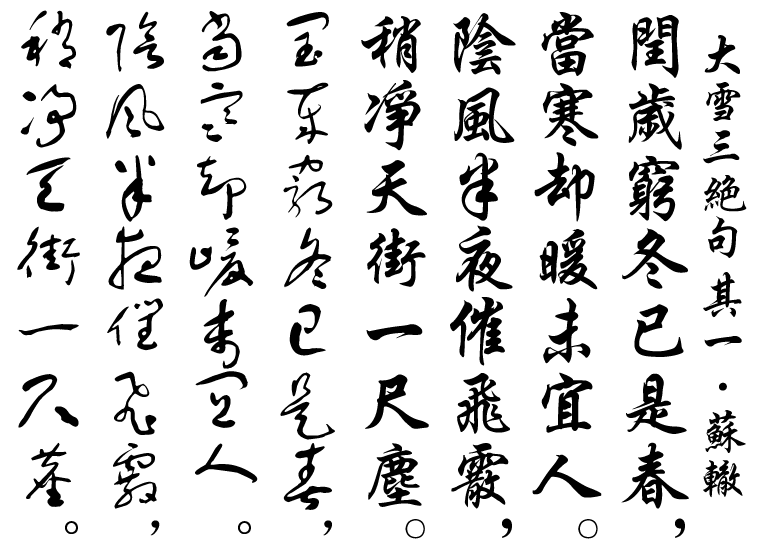 大雪三絕句 其一·蘇轍
閏歲窮冬已是春，
當寒却暖未宜人。
陰風半夜催飛霰，
稍淨天街一尺塵。
閏歲窮冬已是春，
當寒却暖未宜人。
陰風半夜催飛霰，
稍淨天街一尺塵。